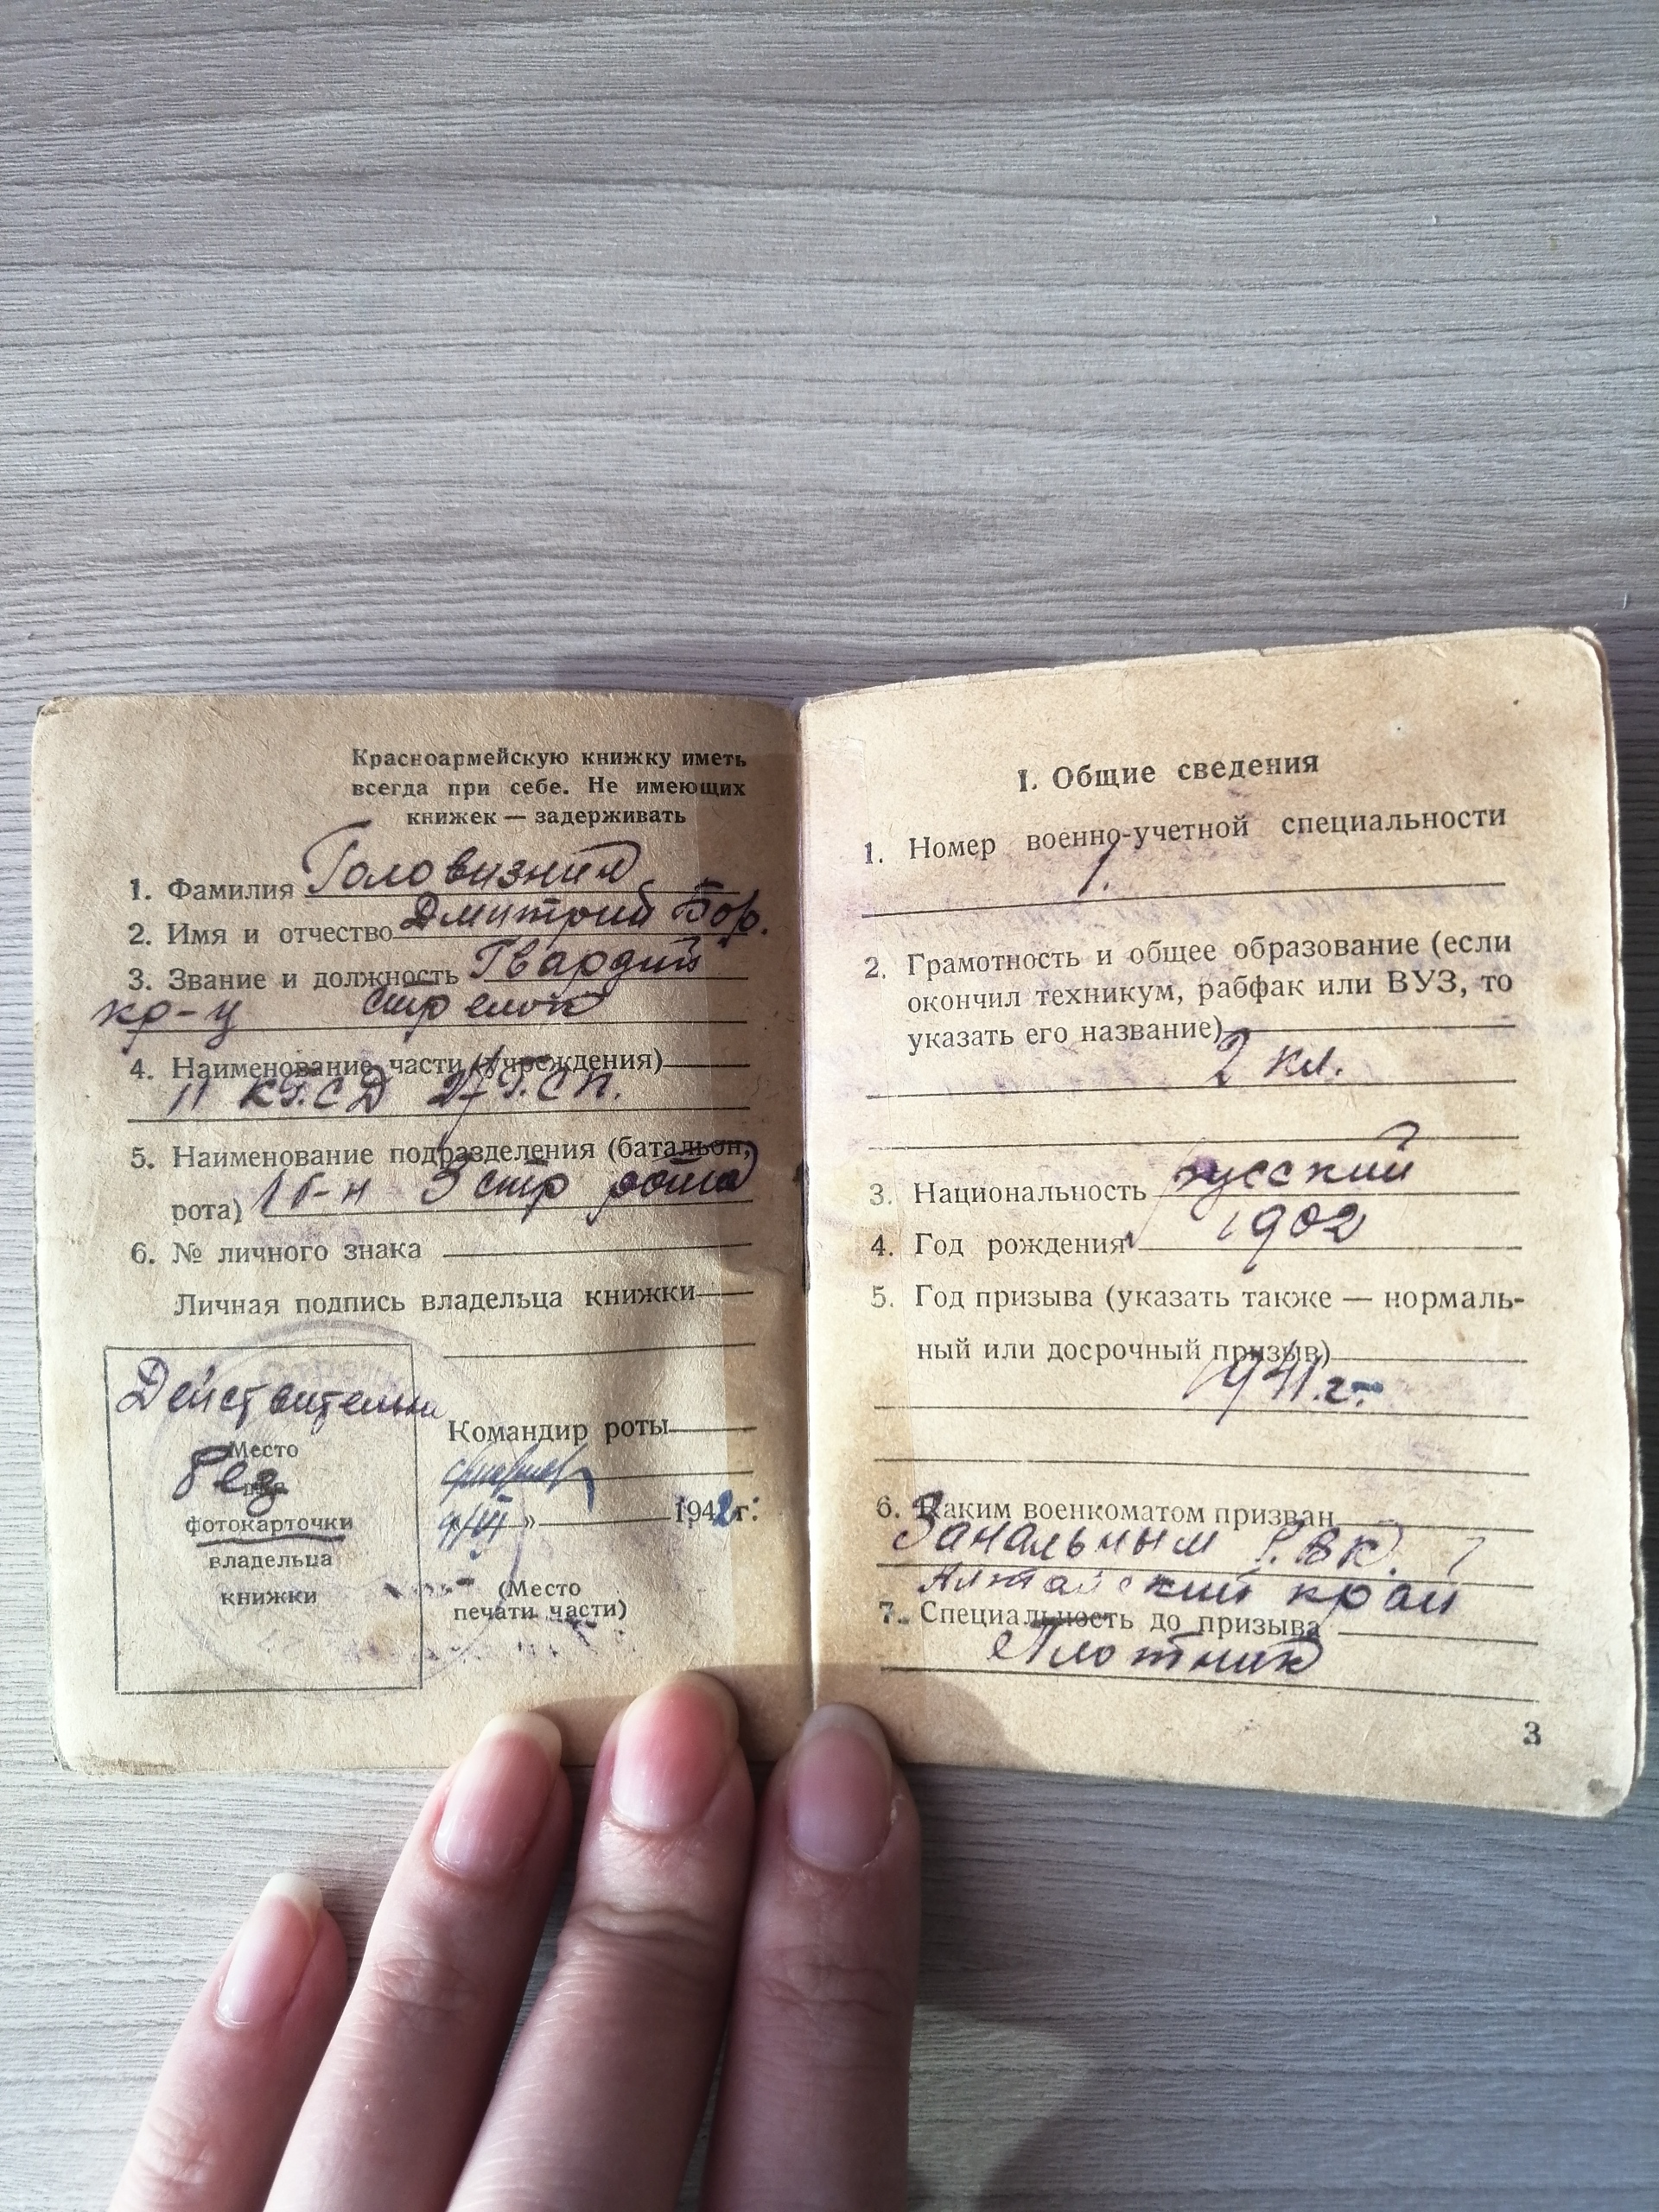 Красноармейскую книжку иметь
всегда при себе. Не имеющих
книжек — задерживать
1. Фамилия Головизнин
2. Имя и отчество Дмитрий Бор.
3. Звание и должность Гвардий
кр-ц стрелок
4. Наименование части (учреждения)
11 кг.СД 27 г.сп.
5. Наименование подразделения (батальон,
рота) 1 б-н 3 стр рота
6. № личного знака
Личная подпись владельца книжки
Действительна
Место
без
для
фотокарточки
владельца
книжки
Командир роты
9/VI » 1942 г.
(Место
печати части)
I. Общие сведения
1. Номер военно-учетной специальности
1.
2. Грамотность и общее образование (если
окончил техникум, рабфак или ВУЗ, то
указать его название)
2 кл.
3. Национальность русский
4. Год рождения 1902
5. Год призыва (указать также — нормаль-
ный или досрочный призыв)
1941.г.
6. Каким военкоматом призван
РВК
Алтайский край
7. Специальность до призыва
Плотник
3